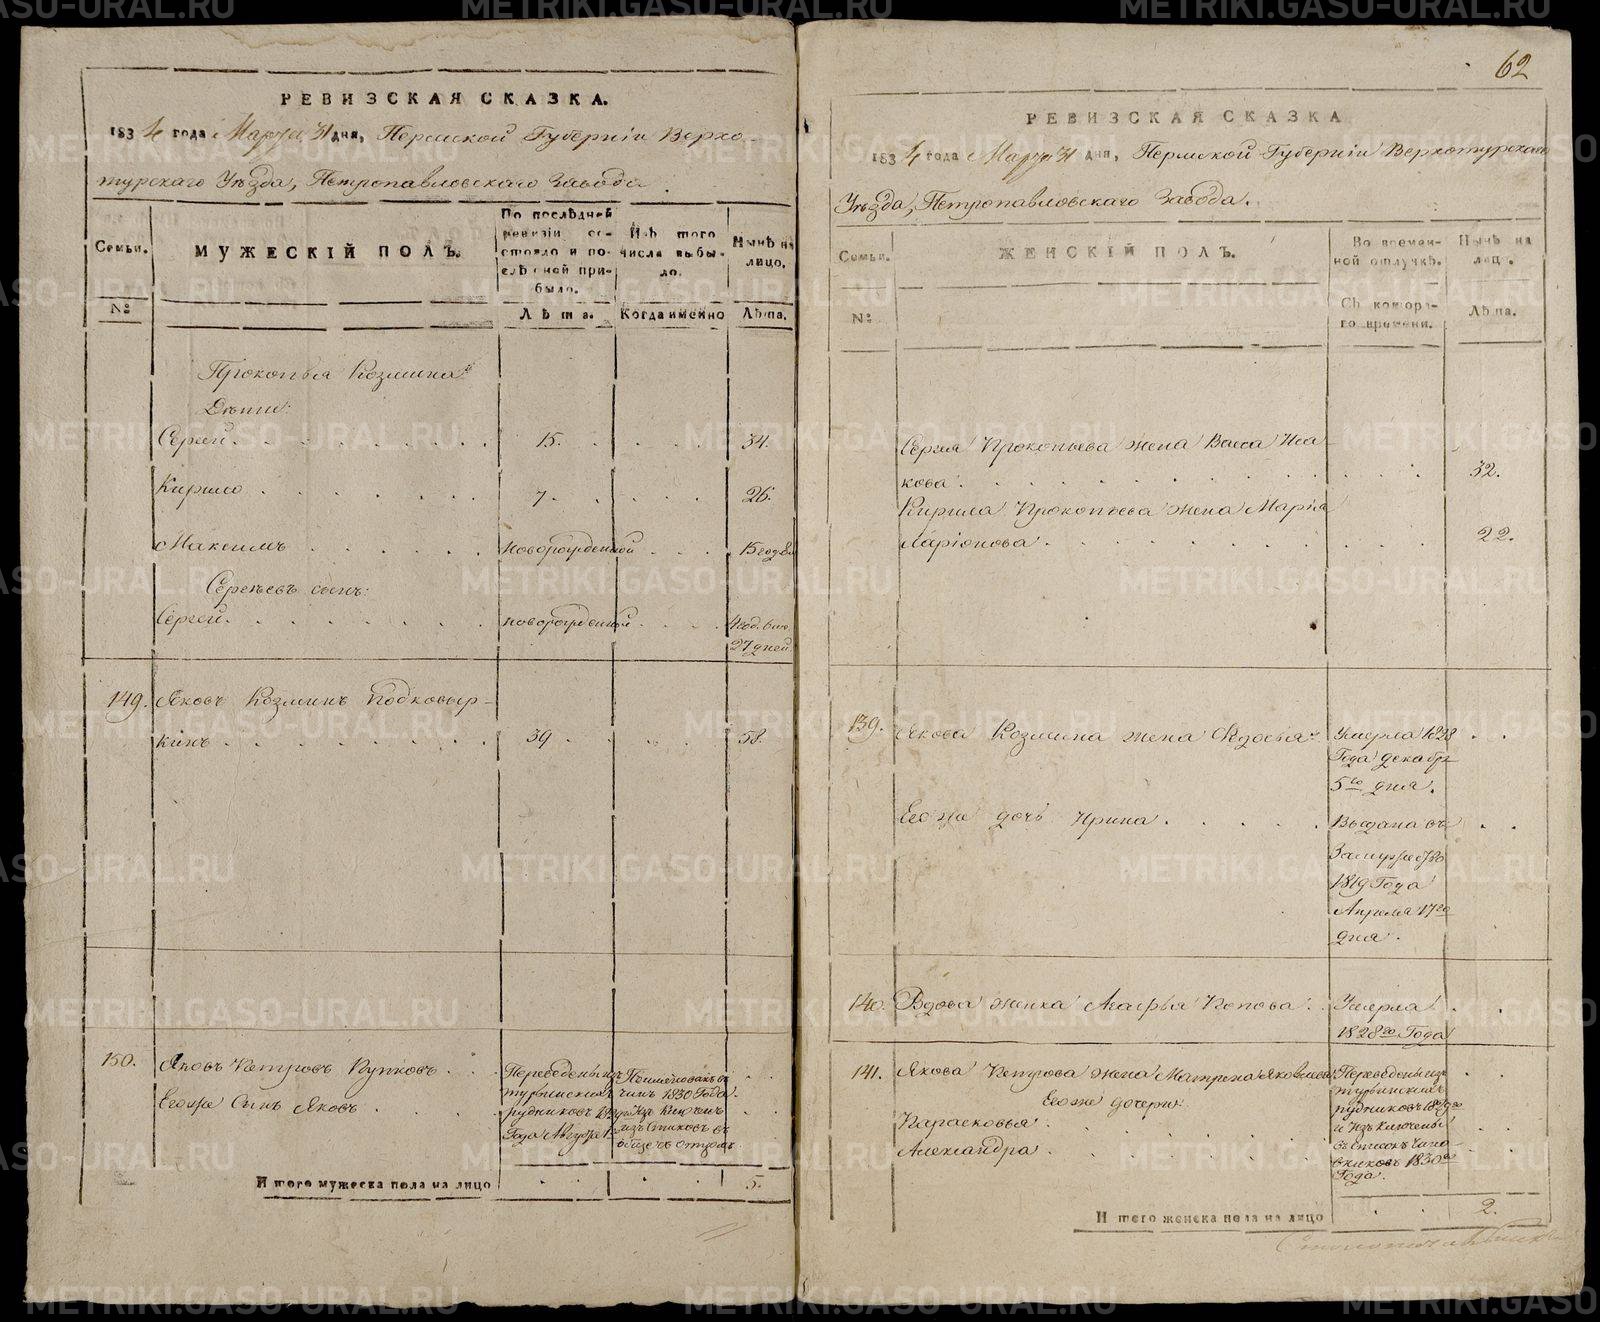 РЕВИЗСКАЯ СКАЗКА.
1834 года Марта 31 дня, Пермской Губернiи Верхо-
турскаго Уѣзда, Петропавловскаго Завода.
Семьи.
МУЖЕСКIЙ ПОЛЪ.
По послѣдней ревизiи состояло и послѣ оной прибыло.
Изъ того числа выбыло.
Нынѣ на лицо.
№
Лѣта.
Когда именно
Лѣта.
Прокопья Козмина
Дѣти:
Сергей 15. 34.
Кирило 7. 26.
Максимъ новорожденной 15 год.
Сергѣевъ сынъ:
Сергей новорожденной 4 год.
27 дней.
149. Яковъ Козминъ Подковыр-
кинъ 39 58.
150. Яковъ Петровъ
Его же Сынъ Яковъ
Переведены изъ
турьинскихъ
рудниковъ
Года Августа
1830 Года
И того мужеска пола на лицо 5.
62
РЕВИЗСКАЯ СКАЗКА
1834 года Марта 31 дня, Пермской Губернiи Верхотурскаго
Уѣзда, Петропавловскаго Завода.
Семьи.
ЖЕНСКIЙ ПОЛЪ.
Во временной отлучкѣ.
Нынѣ на лицо.
№
Съ которого времени.
Лѣта.
Сергея Прокопьева жена Васса Иса-
кова 32.
Кирила Прокопьева жена Марья
Ларiонова 22.
139. Якова Козмина жена Овдотья
Умерла 1828
Года декабря
5го дня.
Его же дочь Ирина
Выдана въ
Замужество
1819 Года
Апреля 17го
дня.
140. Вдова женка Агафья Попова
Умерла
1828го Года
141. Якова Петрова жена Матрена Яковлева
Его же дочери:
Парасковья
Александра
Переведены изъ
турьинскихъ
рудниковъ
и изъ ключены
въ Списокъ
1830го
Года.
И того женска пола на лицо 2.
METRIKI.GASO-URAL.RU